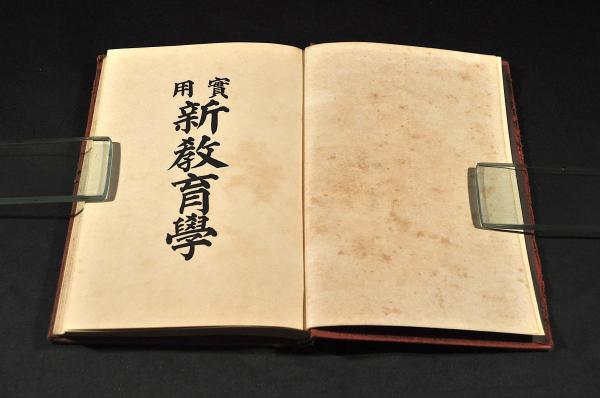 實用
新教育學